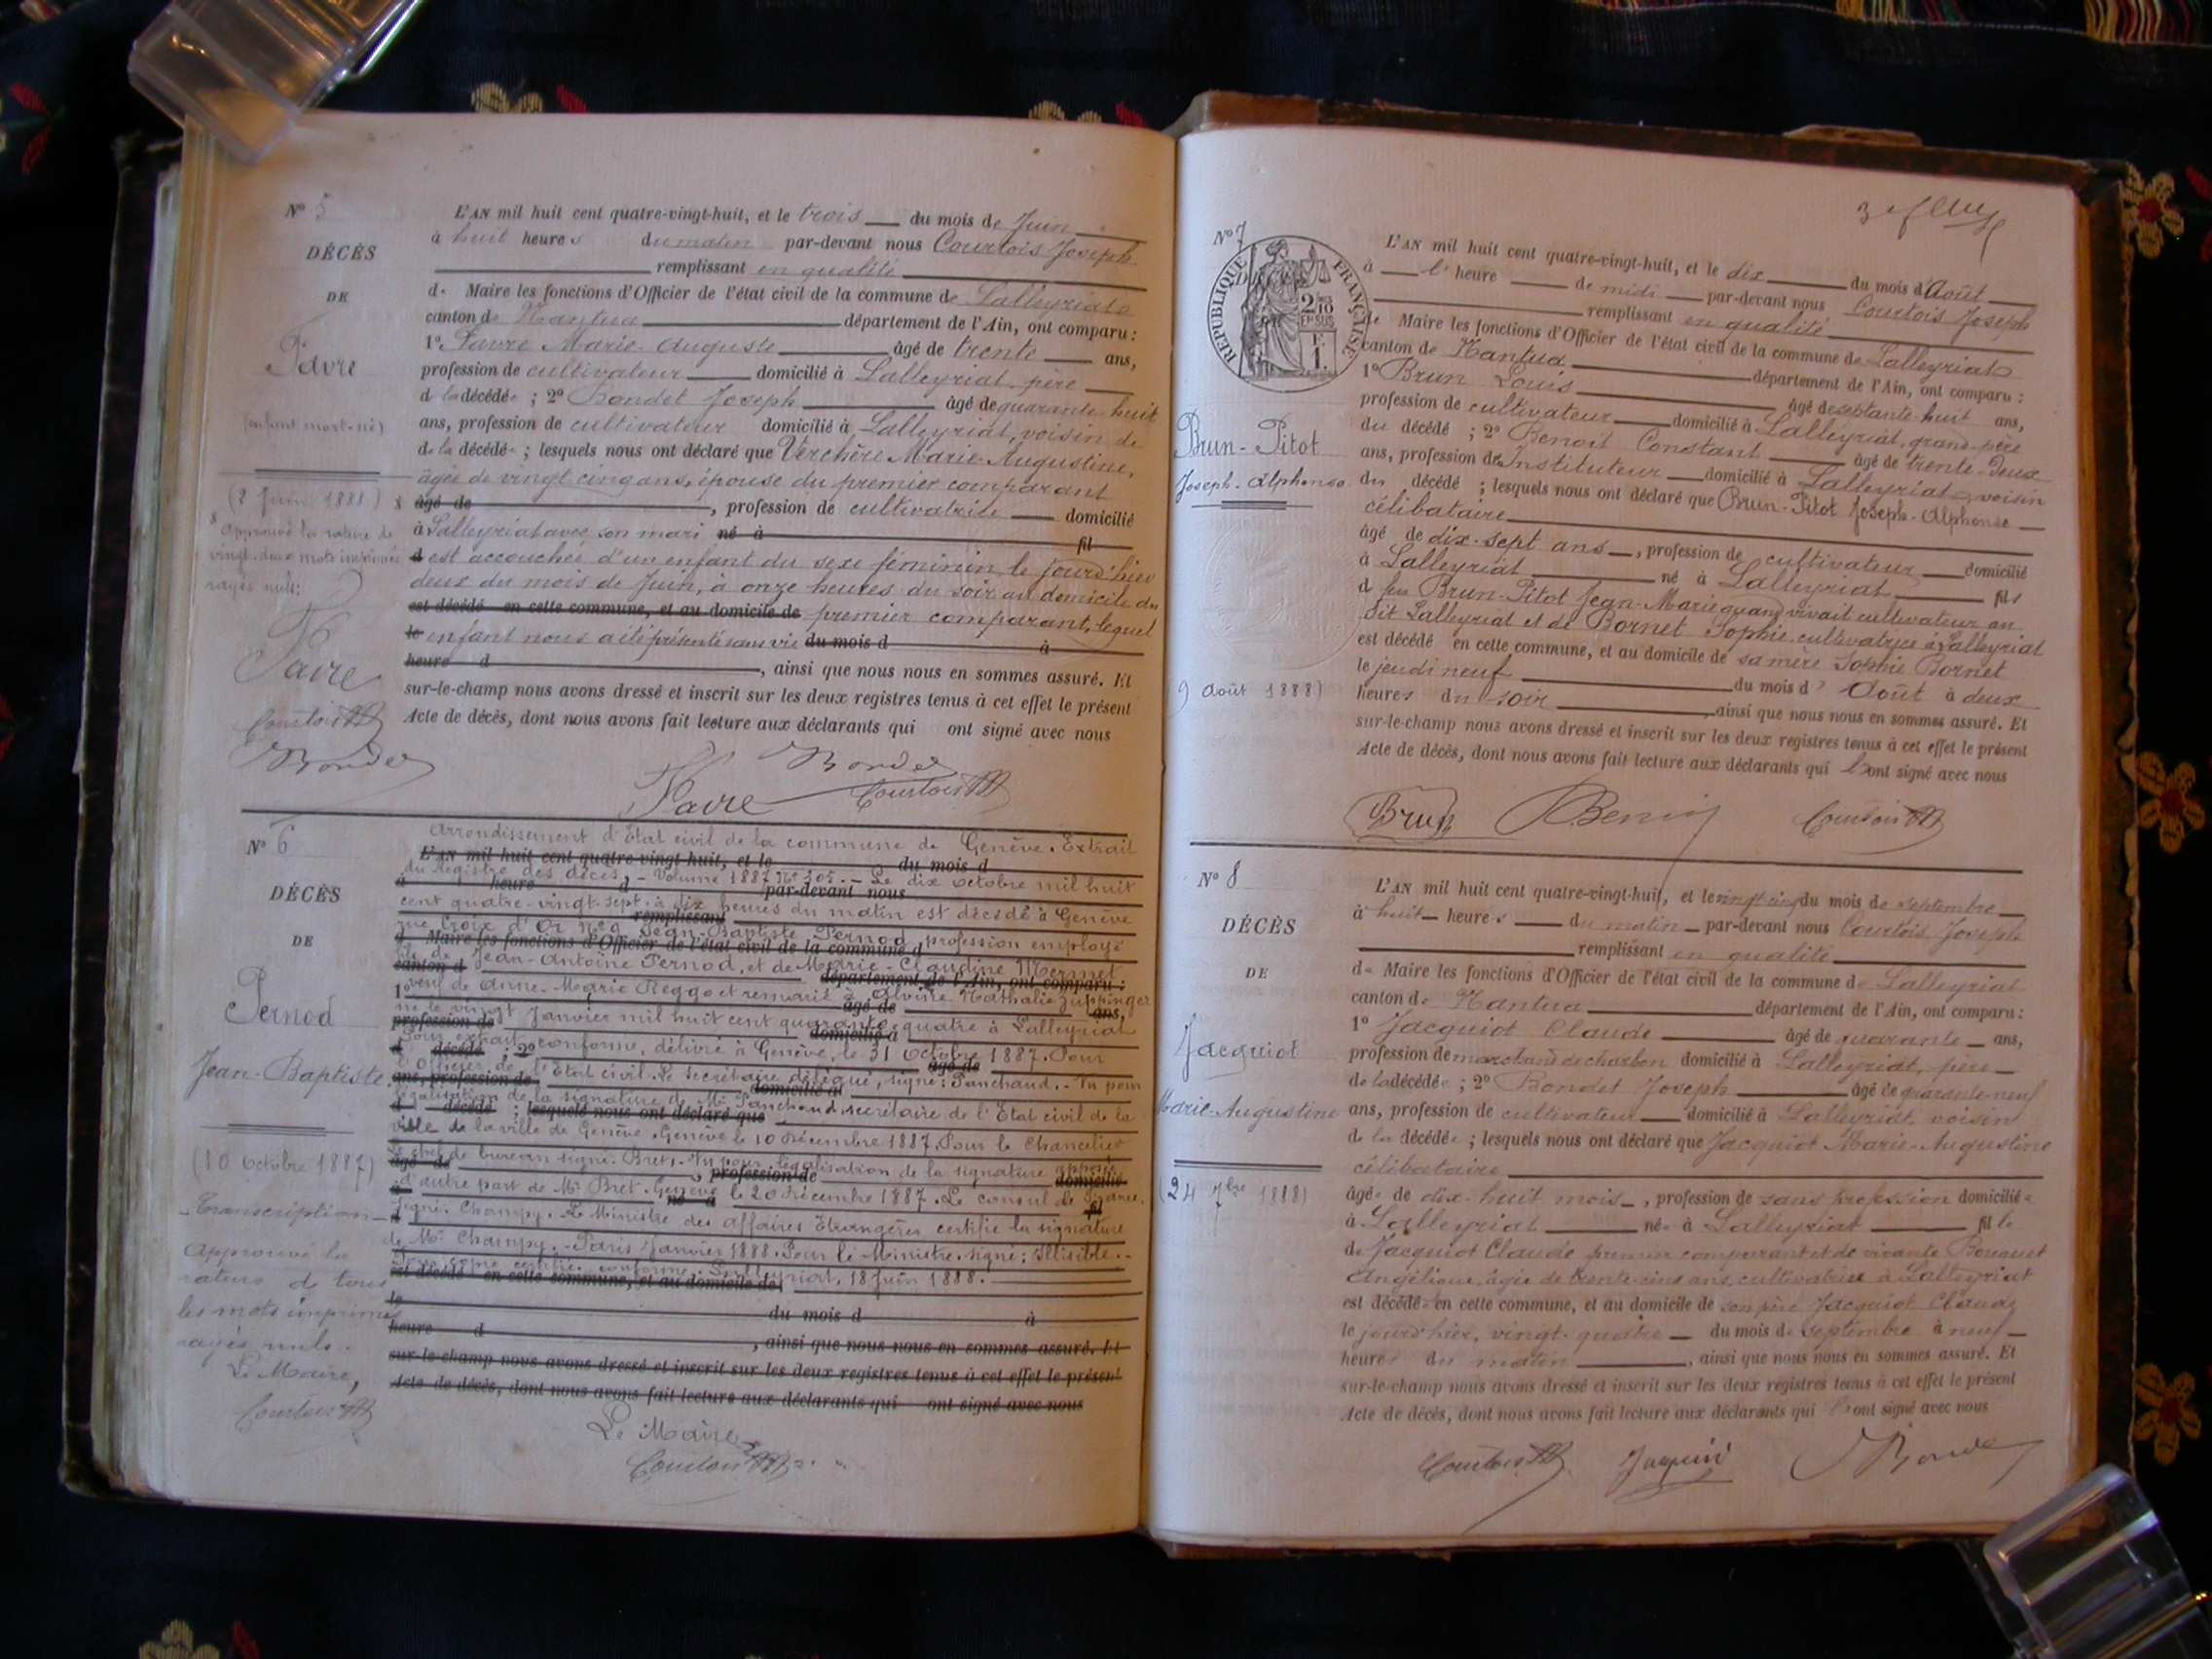 N° 5
DÉCÈS
DE
Favre
(enfant mort-né)
(2 Juin 1888)
Approuvé la rature de
vingt-deux mots imprimés
rayés nuls:
Favre
Courtois
Bondet
L'AN mil huit cent quatre-vingt-huit, et le trois du mois de Juin
à huit heures du matin par-devant nous Courtois Joseph
remplissant en qualité
de Maire les fonctions d'Officier de l'état civil de la commune de Lalleyriat
canton de Nantua département de l'Ain, ont comparu :
1° Favre Marie-Auguste âgé de trente ans,
profession de cultivateur domicilié à Lalleyriat, père
de la décédée ; 2° Bondet Joseph âgé de quarante-huit
ans, profession de cultivateur domicilié à Lalleyriat, voisin de
de la décédée ; lesquels nous ont déclaré que Verchère Marie-Augustine,
âgée de vingt cinq ans, épouse du premier comparant
âgé de , profession de cultivatrice domicilié
à Lalleyriat avec son mari né à fil
d est accouchée d'un enfant du sexe féminin le jourd'hier
deux du mois de Juin, à onze heures du soir au domicile du
est décédé en cette commune, et au domicile de premier comparant, lequel
le enfant nous a été présenté sans vie du mois d à
heure d , ainsi que nous nous en sommes assuré. Et
sur-le-champ nous avons dressé et inscrit sur les deux registres tenus à cet effet le présent
Acte de décès, dont nous avons fait lecture aux déclarants qui ont signé avec nous
Favre Bondet Courtois
N° 6
DÉCÈS
DE
Pernod
Jean-Baptiste
(10 Octobre 1887)
Transcription
Approuvé la
rature de tous
les mots imprimés
rayés nuls.
Le Maire,
Courtois
Arrondissement d'Etat civil de la commune de Genève. Extrait
L'AN mil huit cent quatre-vingt-huit, et le du mois d
du registre des décès, - Volume 1887 N° 305. - Le dix octobre mil huit
à heure d par-devant nous
cent quatre-vingt-sept à dix heures du matin est décédé à Genève
remplissant
rue Croix d'Or n° 9 Jean-Baptiste Pernod, profession employé
d Maire les fonctions d'Officier de l'état civil de la commune d
fils de Jean-Antoine Pernod, et de Marie-Claudine Mermet
canton d département de l'Ain, ont comparu :
veuf de Anne-Marie Reggo et remarié à Alvine Nathalie Zuppinger
1° âgé de ans,
né le vingt Janvier mil huit cent quarante-quatre à Lalleyriat
profession de domicilié à
Pour extrait conforme, délivré à Genève, le 31 Octobre 1887. Pour
d décédé ; 2° âgé de
l'Officier de l'Etat civil. Le secrétaire délégué, signé: Panchaud. - Vu pour
ans, profession de domicilié à
légalisation de la signature de Mr Panchaud, secrétaire de l'Etat civil de la
d décédé ; lesquels nous ont déclaré que
ville de la ville de Genève. Genève le 10 Décembre 1887. Pour le Chancelier
Le chef de bureau signé: Bret. - Vu pour légalisation de la signature apposée
âgé de , profession de domicilié
d'autre part de Mr Bret. Genève le 20 Décembre 1887. Le consul de France.
à né à fil
Signé: Champy. Le Ministre des affaires Etrangères certifie la signature
d
de Mr Champy. - Paris Janvier 1888. Pour le Ministre. signé: Illisible. -
Pour copie certifiée conforme. Lalleyriat, 18 Juin 1888.
est décédé en cette commune, et au domicile de
le du mois d à
heure d , ainsi que nous nous en sommes assuré. Et
sur-le-champ nous avons dressé et inscrit sur les deux registres tenus à cet effet le présent
Acte de décès, dont nous avons fait lecture aux déclarants qui ont signé avec nous
Le Maire
Courtois
N° 7
RÉPUBLIQUE FRANÇAISE
2/10 EN SUS
F 1.
Brun-Pitot
Joseph-Alphonse
9 Août 1888)
L'AN mil huit cent quatre-vingt-huit, et le dix du mois d'Août
à l' heure de midi par-devant nous Courtois Joseph
remplissant en qualité
de Maire les fonctions d'Officier de l'état civil de la commune de Lalleyriat
canton de Nantua département de l'Ain, ont comparu :
1° Brun Louis âgé de septante-huit ans,
profession de cultivateur domicilié à Lalleyriat, grand-père
du décédé ; 2° Benoit Constant âgé de trente-deux
ans, profession de Instituteur domicilié à Lalleyriat, voisin
du décédé ; lesquels nous ont déclaré que Brun-Pitot Joseph-Alphonse
célibataire
âgé de dix-sept ans, profession de cultivateur domicilié
à Lalleyriat né à Lalleyriat fils
d feu Brun-Pitot Jean-Marie quand vivait cultivateur au
dit Lalleyriat et de Bornet Sophie cultivatrice à Lalleyriat
est décédé en cette commune, et au domicile de sa mère Sophie Bornet
le jeudi neuf du mois d' Août à deux
heures du soir , ainsi que nous nous en sommes assuré. Et
sur-le-champ nous avons dressé et inscrit sur les deux registres tenus à cet effet le présent
Acte de décès, dont nous avons fait lecture aux déclarants qui ont signé avec nous
Brun Benoit Courtois
N° 8
DÉCÈS
DE
Jacquiot
Marie-Augustine
(24 7bre 1888)
L'AN mil huit cent quatre-vingt-huit, et le vingt cinq du mois de septembre
à huit heures du matin par-devant nous Courtois Joseph
remplissant en qualité
de Maire les fonctions d'Officier de l'état civil de la commune de Lalleyriat
canton de Nantua département de l'Ain, ont comparu :
1° Jacquiot Claude âgé de quarante ans,
profession de marchand de charbon domicilié à Lalleyriat, père
de la décédée ; 2° Bondet Joseph âgé de quarante-neuf
ans, profession de cultivateur domicilié à Lalleyriat, voisin
de la décédée ; lesquels nous ont déclaré que Jacquiot Marie-Augustine
célibataire
âgée de dix-huit mois, profession de sans profession domiciliée
à Lalleyriat née à Lalleyriat fille
de Jacquiot Claude premier comparant et de vivante Bouquet
Angélique, âgée de trente-cinq ans, cultivatrice à Lalleyriat
est décédée en cette commune, et au domicile de son père Jacquiot Claude
le jourd'hier, vingt-quatre du mois de Septembre à neuf
heures du matin , ainsi que nous nous en sommes assuré. Et
sur-le-champ nous avons dressé et inscrit sur les deux registres tenus à cet effet le présent
Acte de décès, dont nous avons fait lecture aux déclarants qui ont signé avec nous
Courtois Jaquiot Bondet